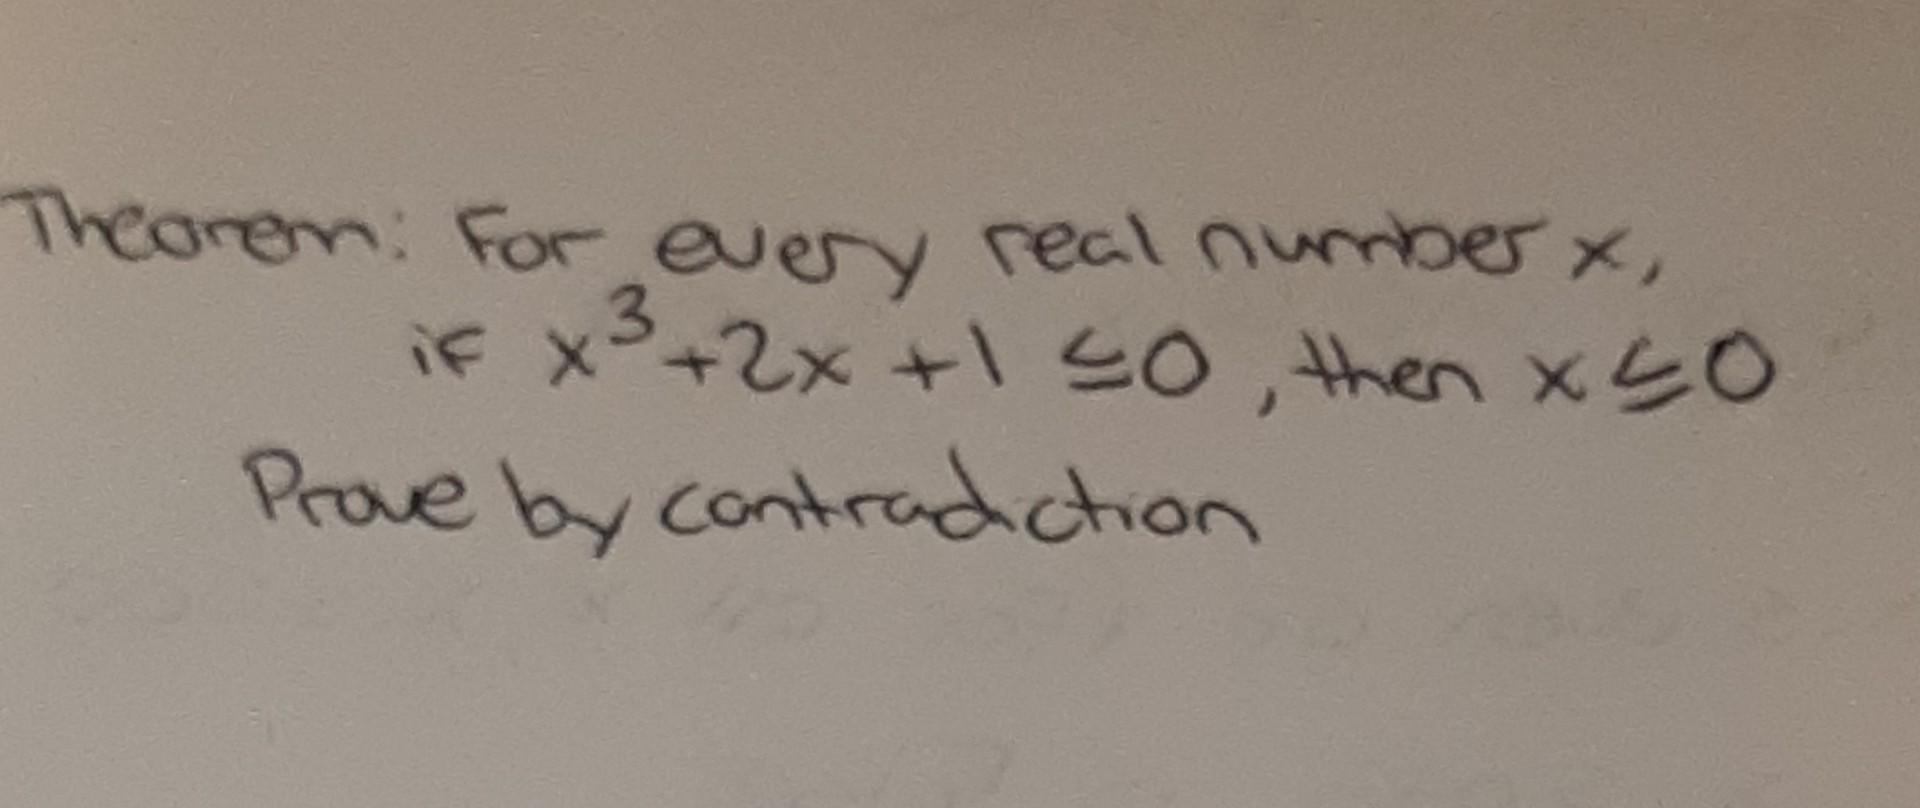 Theorem: For every real number x,
if x³+2x+1 ≤0, then x≤0
Prove by contradiction